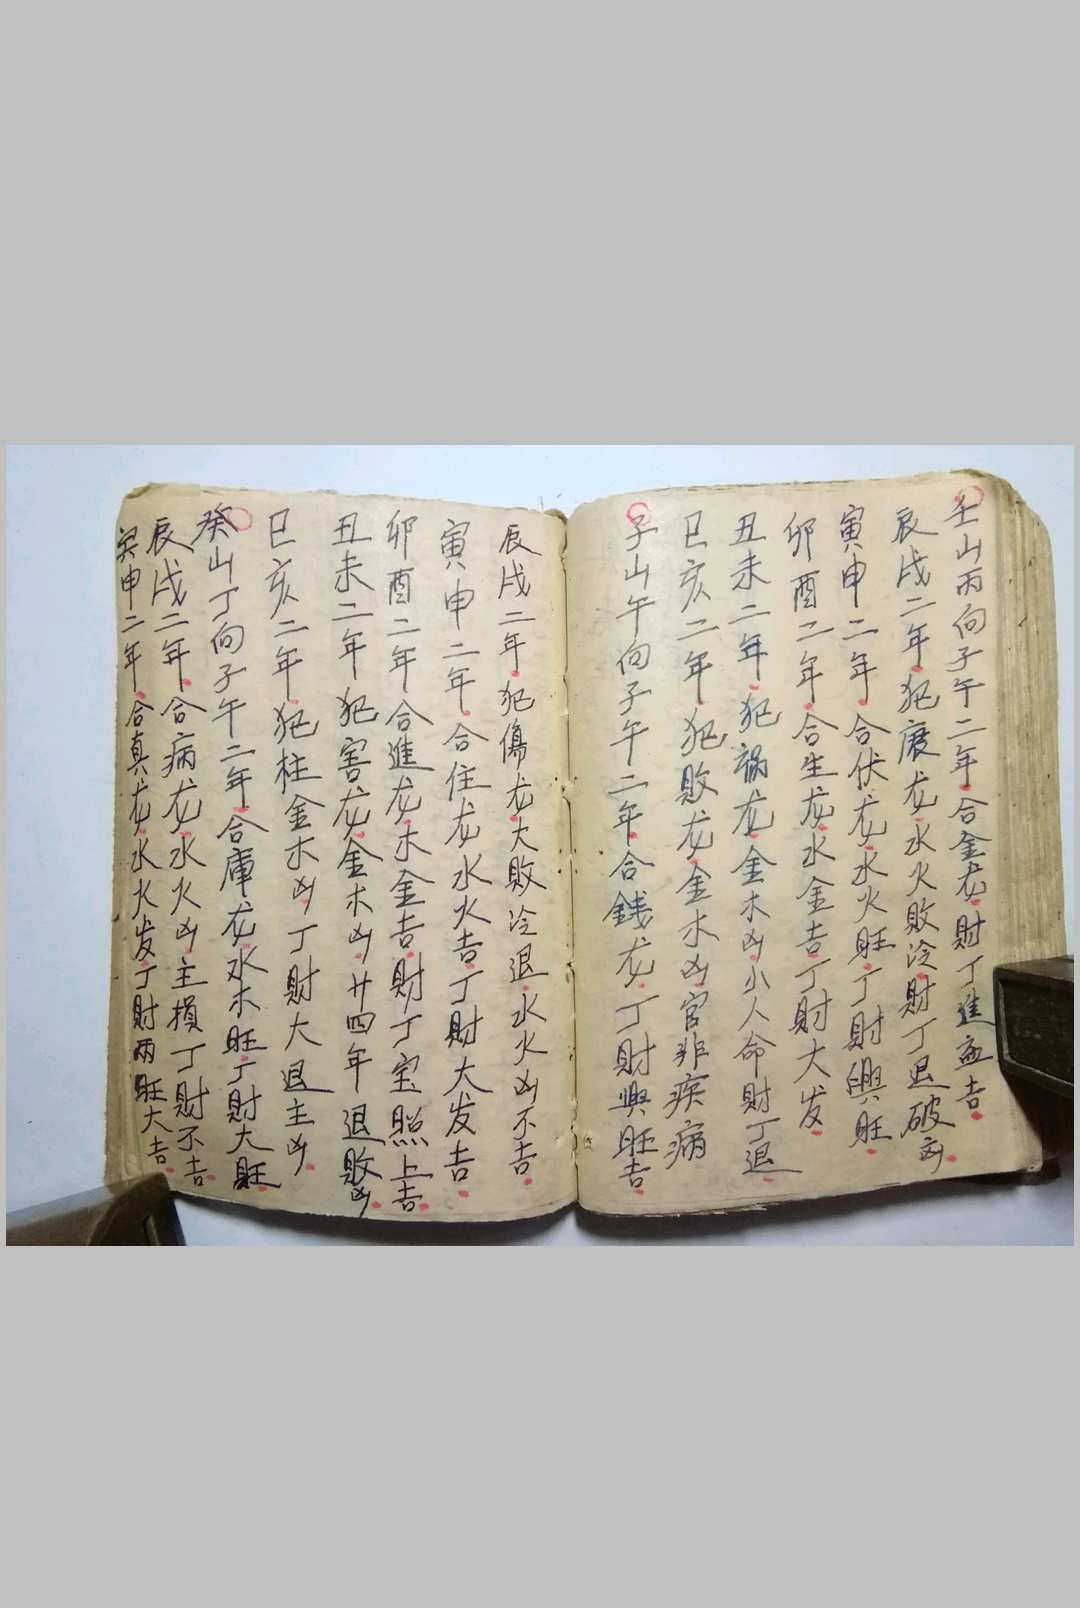 壬山丙向子午二年合金龙財丁進益吉
辰戌二年犯廢龙水火敗冷財丁退破凶
寅申二年合伏龙水火旺丁財興旺
卯酉二年合生龙水金吉丁財大发
丑未二年犯禍龙金木凶小人命財丁退
巳亥二年犯敗龙金木凶官非疾病
子山午向子午二年合錢龙丁財興旺吉
辰戌二年犯傷龙大敗冷退水火凶不吉
寅申二年合住龙水火吉丁財大发吉
卯酉二年合進龙木金吉財丁宝照上吉
丑未二年犯害龙金木凶廿四年退敗凶
巳亥二年犯柱金木凶丁財大退主凶
癸山丁向子午二年合庫龙水木旺丁財大旺
辰戌二年合病龙水火凶主損丁財不吉
寅申二年合真龙水火发丁財兩旺大吉